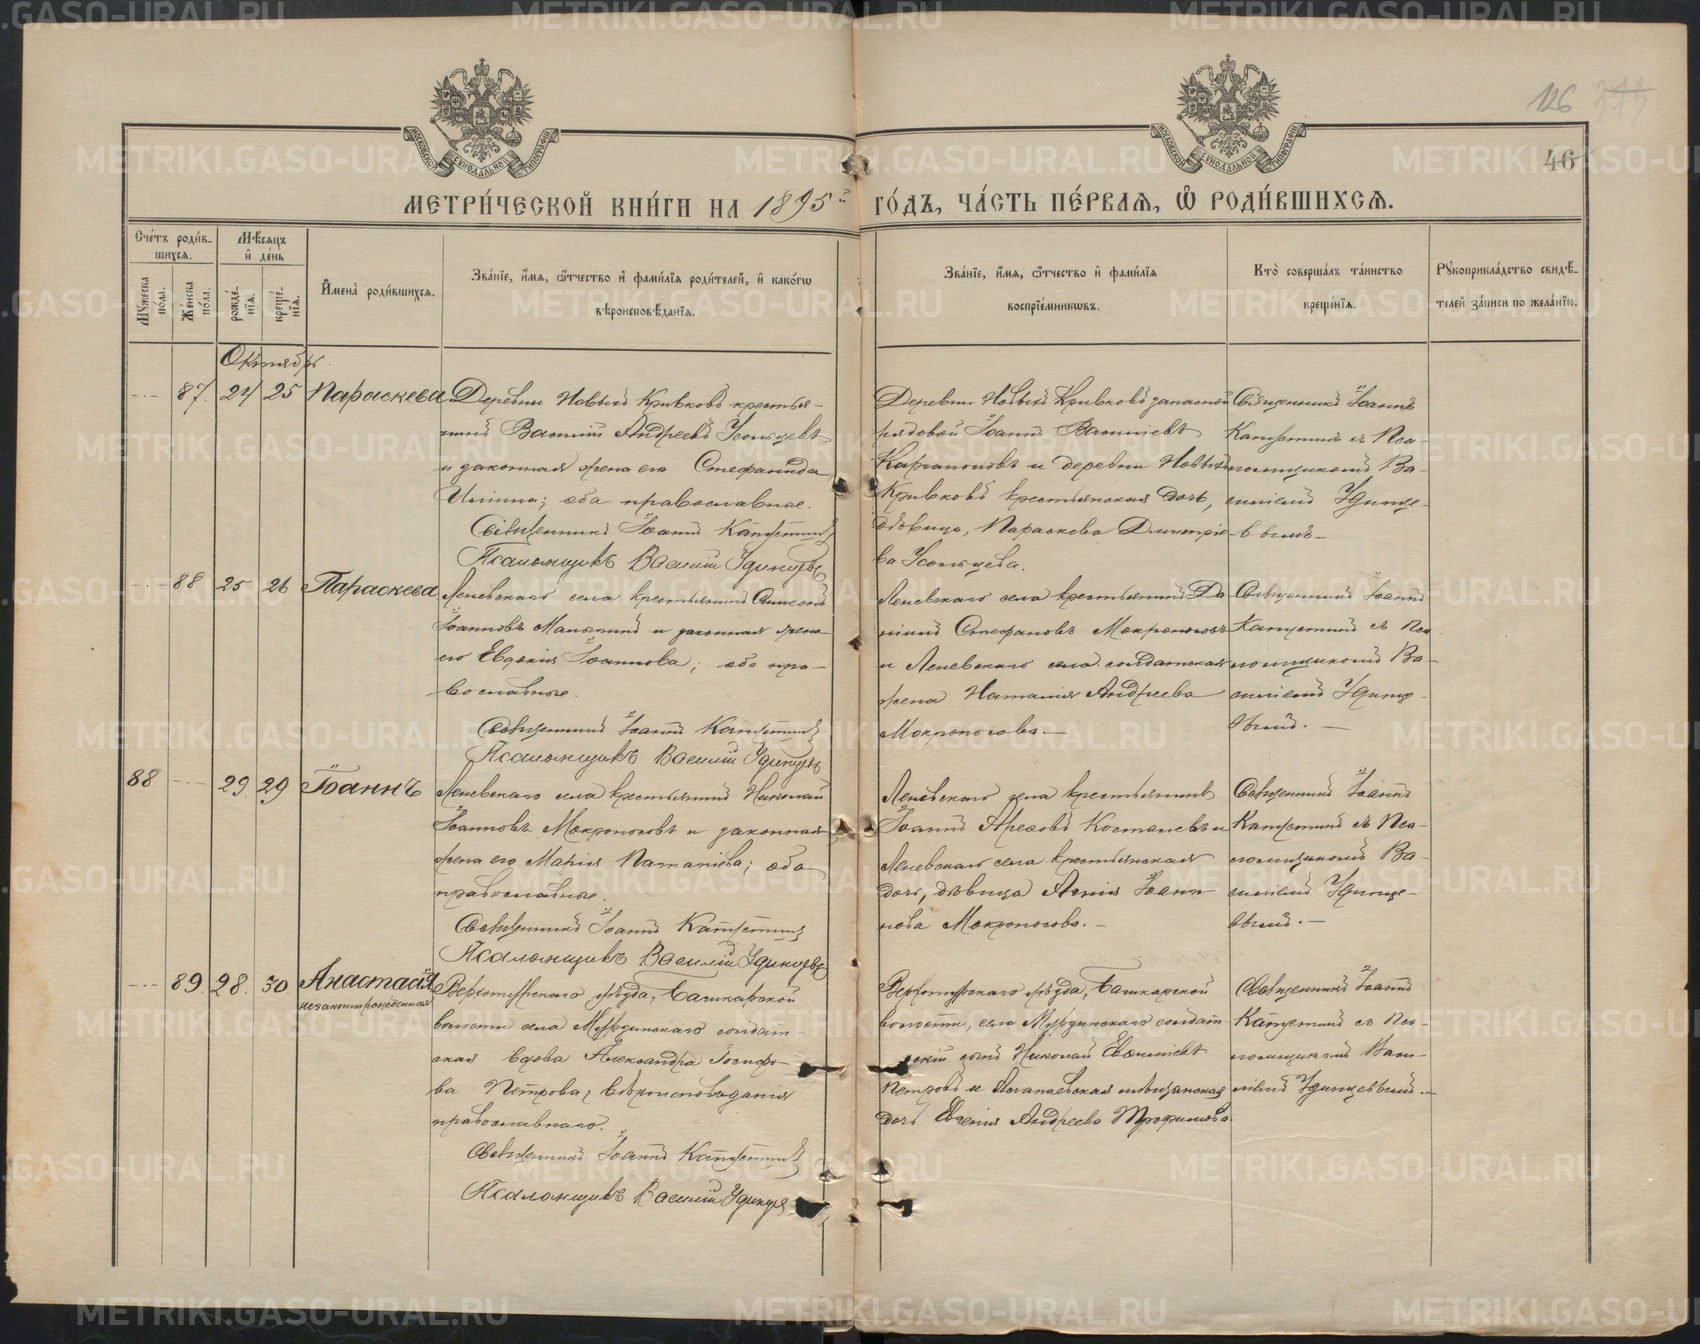 126
46
МЕТРИ́ЧЕСКОЙ КНИ́ГИ НА 1895й ГО́ДЪ, ЧА́СТЬ ПЕ́РВАЯ, Ѡ РОДИ́ВШИХСЯ.
Сче́тъ роди́в-
шихся.
Мꙋ́жеска по́ла.
Же́нска по́ла.
Мѣ́сяцъ
и де́нь
рожде́-
нїя.
креще́-
нїя.
И҆мена̀ роди́вшихся.
Зва́нїе, и҆́мя, ѻ҆́тчество и҆ фами́лїя роди́телей, и҆ како́гѡ
вѣроисповѣ́данїя.
Зва́нїе, и҆́мя, ѻ҆́тчество и҆ фами́лїя
воспрїе́мниковъ.
Кто̀ соверша́лъ та́инство
креще́нїя.
Рꙋкоприкла́дство свидѣ́-
телей за́писи по жела́нїю.
Октябрь.
87 24 25 Параскева
Деревни Новыхъ Кривковъ крестья-
нинъ Василій Андреевъ Усольцевъ
и законная жена его Стефанида
оба православные.
Священникъ Іоаннъ Капустинъ
Псаломщикъ Василій Удинцевъ
Деревни Новыхъ Кривковъ запасной
рядовой Іоаннъ Василіевъ
Каргаполовъ и деревни Новыхъ
Кривковъ крестьянская дочь,
дѣвица, Параскева Димитріе-
ва Усольцева.
Священникъ Іоаннъ
Капустинъ съ Пса-
ломщикомъ Ва-
силіемъ Удинце-
вымъ.
88 25 26 Параскева
Леневскаго села крестьянинъ Симеонъ
Іоанновъ и законная жена
его Евдокія Іоаннова; оба пра-
вославные.
Священникъ Іоаннъ Капустинъ
Псаломщикъ Василій Удинцевъ
Леневскаго села крестьянинъ Да-
ніилъ Стефановъ Мокроносовъ
и Леневскаго села солдатская
жена Наталія Андреева
Мокроносова.
Священникъ Іоаннъ
Капустинъ съ Пса-
ломщикомъ Ва-
силіемъ Удинце-
вымъ.
88 29 29 Іоаннъ
Леневскаго села крестьянинъ Николай
Іоанновъ Мокроносовъ и законная
жена его Марія оба
православные.
Священникъ Іоаннъ Капустинъ
Псаломщикъ Василій Удинцевъ
Леневскаго села крестьянинъ
Іоаннъ Костылевъ и
Леневскаго села крестьянская
дочь, дѣвица Іоан-
нова Мокроносова.
Священникъ Іоаннъ
Капустинъ съ Пса-
ломщикомъ Ва-
силіемъ Удинце-
вымъ.
89 28 30 Анастасія
незаконнорожденная
Верхотурскаго уѣзда, Башкарской
волости села Мурзинскаго солдат-
ская вдова Александра Іосифо-
ва Петрова, вѣроисповѣданія
православнаго.
Священникъ Іоаннъ Капустинъ
Псаломщикъ Василій Удинцевъ
Верхотурскаго уѣзда, Башкарской
волости, села Мурзинскаго солдат-
скій сынъ Николай
Петровъ и Алапаевская мѣщанская
дочь Евгенія Андреева Трофимова.
Священникъ Іоаннъ
Капустинъ съ Пса-
ломщикомъ Васи-
ліемъ Удинцевымъ.
METRIKI.GASO-URAL.RU